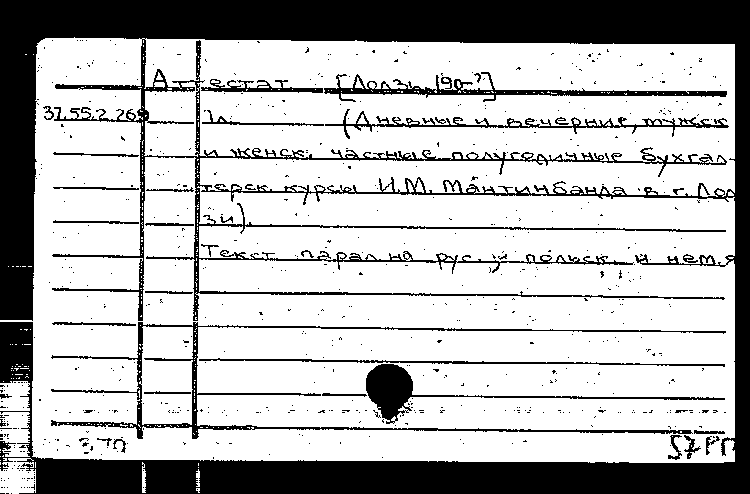 Аттестат [Лодзь, 190-?]
37.55.2.269 1л. (Дневные и вечерние, мужск
и женск. частные полугодичные бухгал-
терск. курсы И.М. Мантинбанда в г. Лод
зи).
Текст парал. на рус., польск. и нем. я